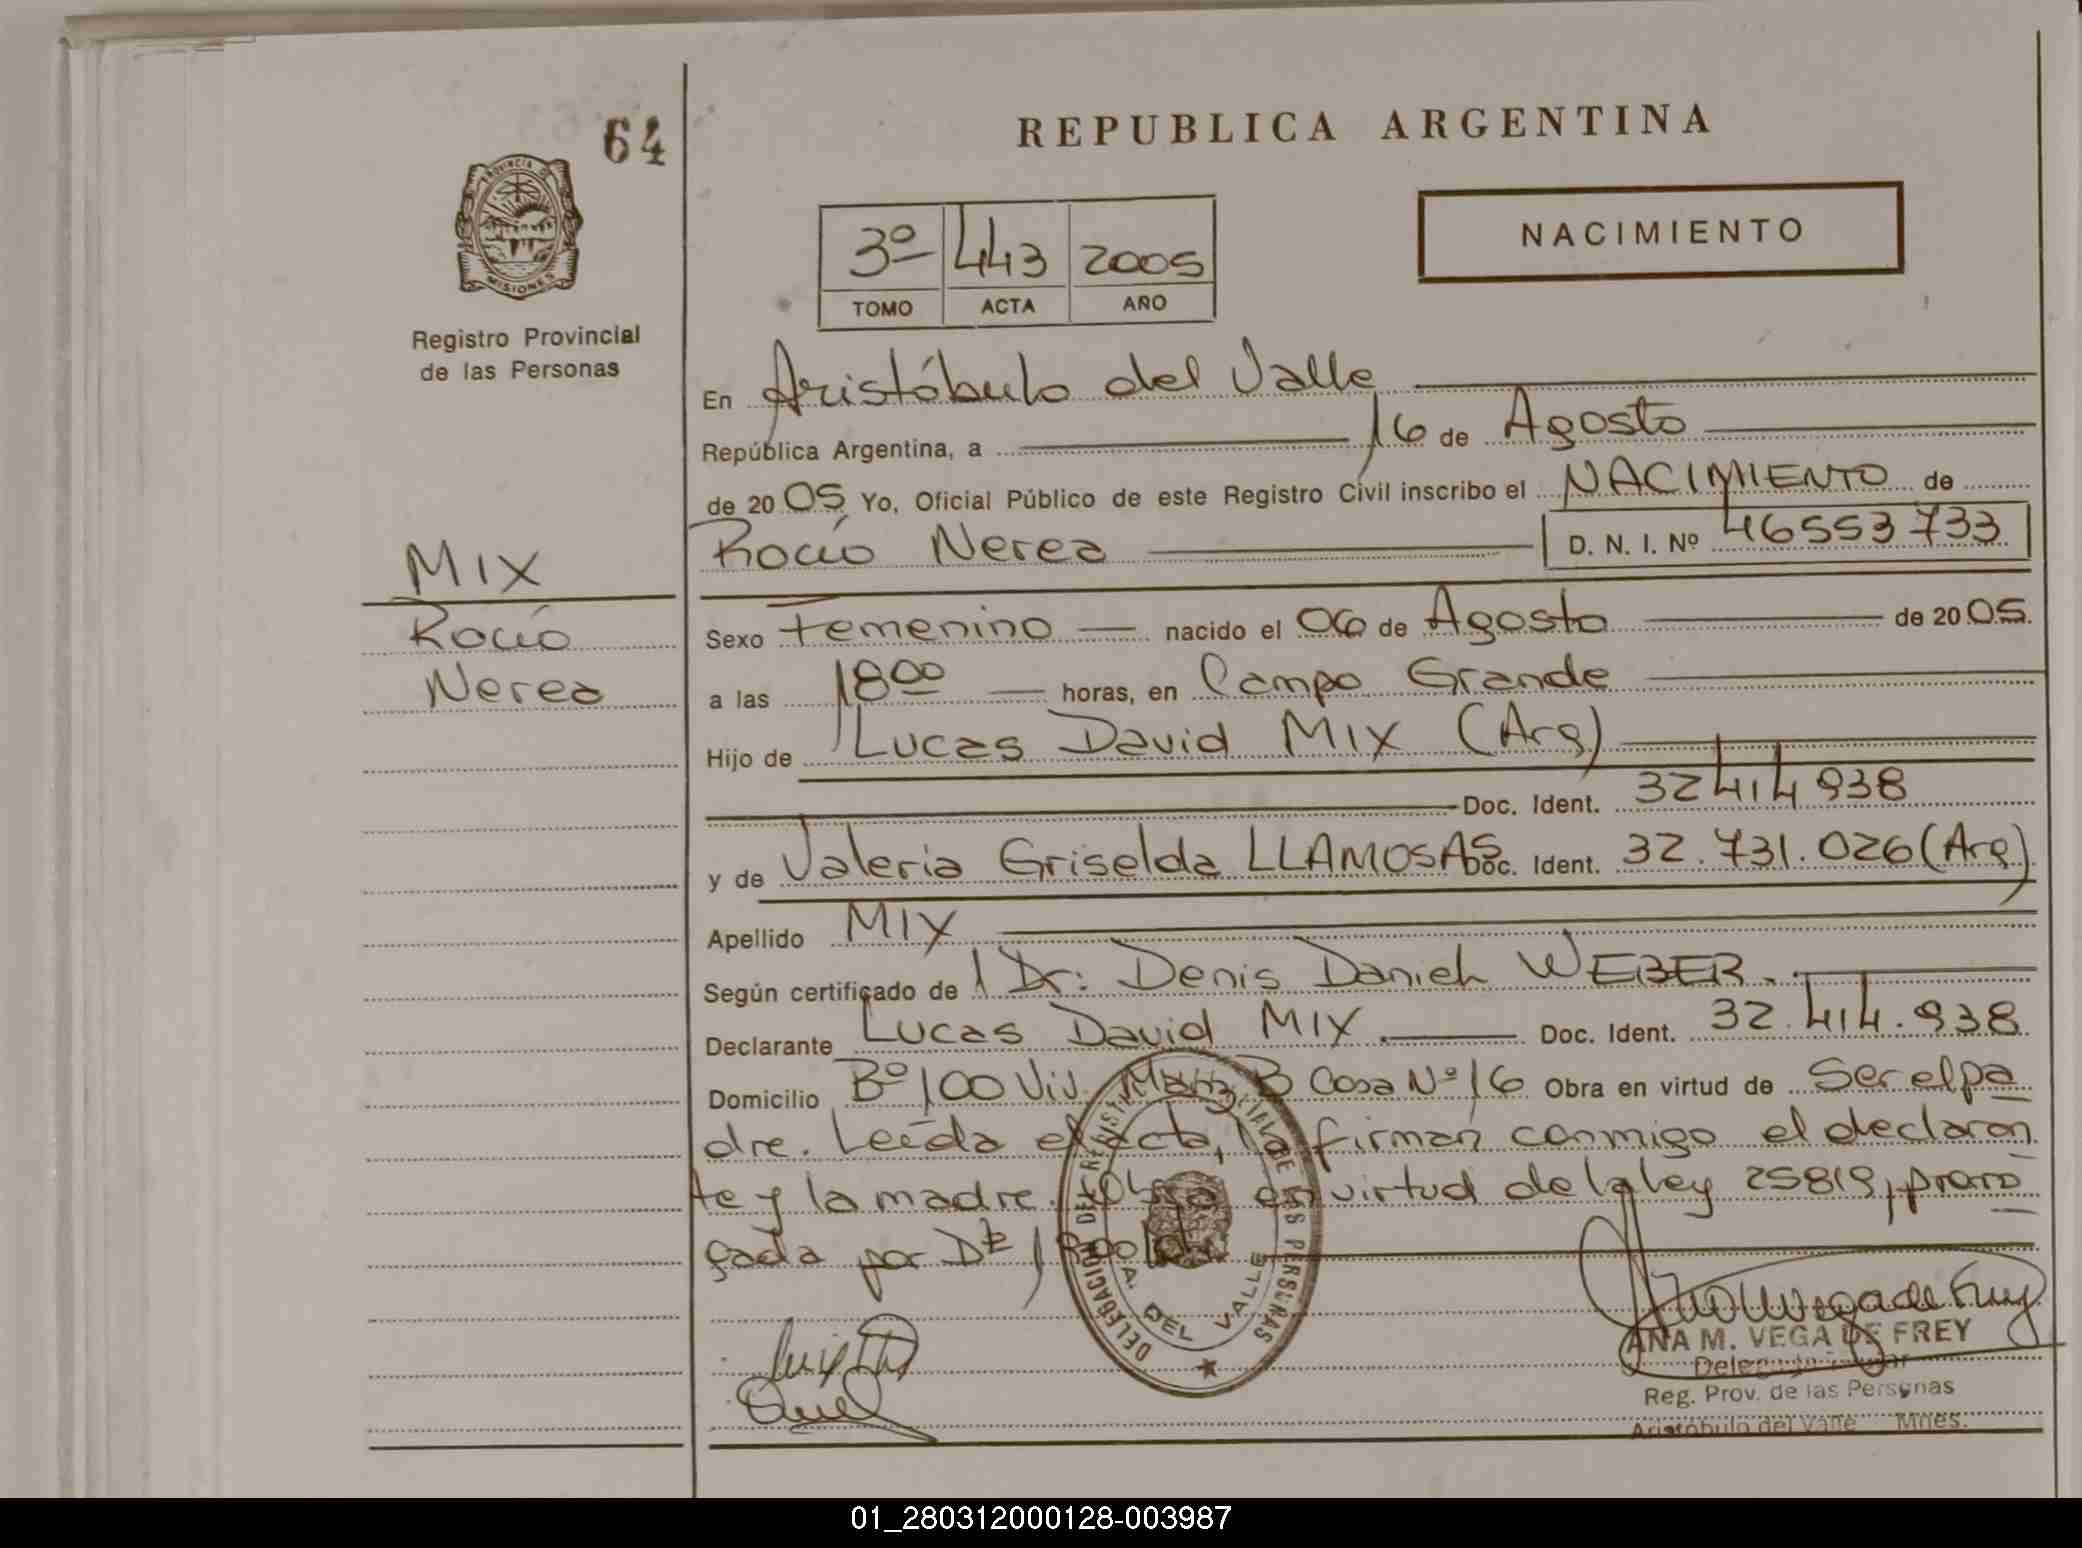 64
PROVINCIA D
MISIONES
Registro Provincial
de las Personas
MIX
Rocío
Nerea
REPUBLICA ARGENTINA
3º 443 2005
TOMO ACTA AÑO
NACIMIENTO
En Aristóbulo del Valle
República Argentina, a 16 de Agosto
de 2005 Yo, Oficial Público de este Registro Civil inscribo el NACIMIENTO de
Rocío Nerea D. N. I. Nº 46553733
Sexo Femenino nacido el 06 de Agosto de 2005.
a las 18ºº horas, en Campo Grande
Hijo de Lucas David MIX (Arg)
Doc. Ident. 32414938
y de Valeria Griselda LLAMOSAS Doc. Ident. 32.731.026 (Arg)
Apellido MIX
Según certificado de Dr: Denis Daniel WEBER.
Declarante Lucas David MIX. Doc. Ident. 32.414.938
Domicilio Bº 100 Viv. Manz B Casa Nº 16 Obra en virtud de Ser el pa
dre. Leída el acta, la firman conmigo el declaran
te y la madre. Obra en virtud de la ley 25819, prorro
gada por
DELEGACION DEL REGISTRO DE LAS PERSONAS
A. DEL VALLE
ANA M. VEGA DE FREY
Delegada Titular
Reg. Prov. de las Personas
Aristóbulo del Valle Mnes.
01_280312000128-003987